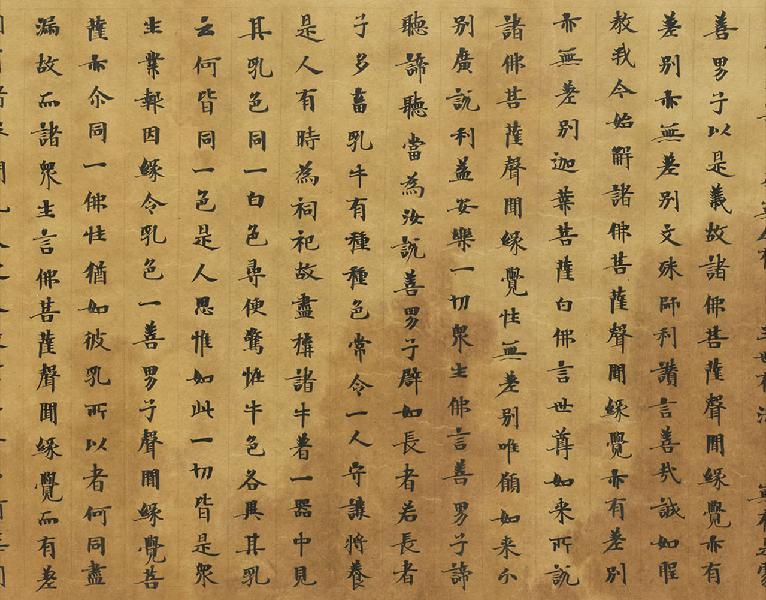 善男子以是義故諸佛菩薩聲聞緣覺亦有
差別亦無差別文殊師利讚言善哉誠如聖
教我今始解諸佛菩薩聲聞緣覺亦有差別
亦無差別迦葉菩薩白佛言世尊如來所說
諸佛菩薩聲聞緣覺性無差別唯願如來分
別廣說利益安樂一切眾生佛言善男子諦
聽諦聽當為汝說善男子譬如長者若長者
子多畜乳牛有種種色常令一人守護將養
是人有時為祠祀故盡𤛗諸牛著一器中見
其乳色同一白色尋便驚怪牛色各異其乳
云何皆同一色是人思惟如此一切皆是眾
生業報因緣令乳色一善男子聲聞緣覺菩
薩亦尒同一佛性猶如彼乳所以者何同盡
漏故而諸眾生言佛菩薩聲聞緣覺而有差